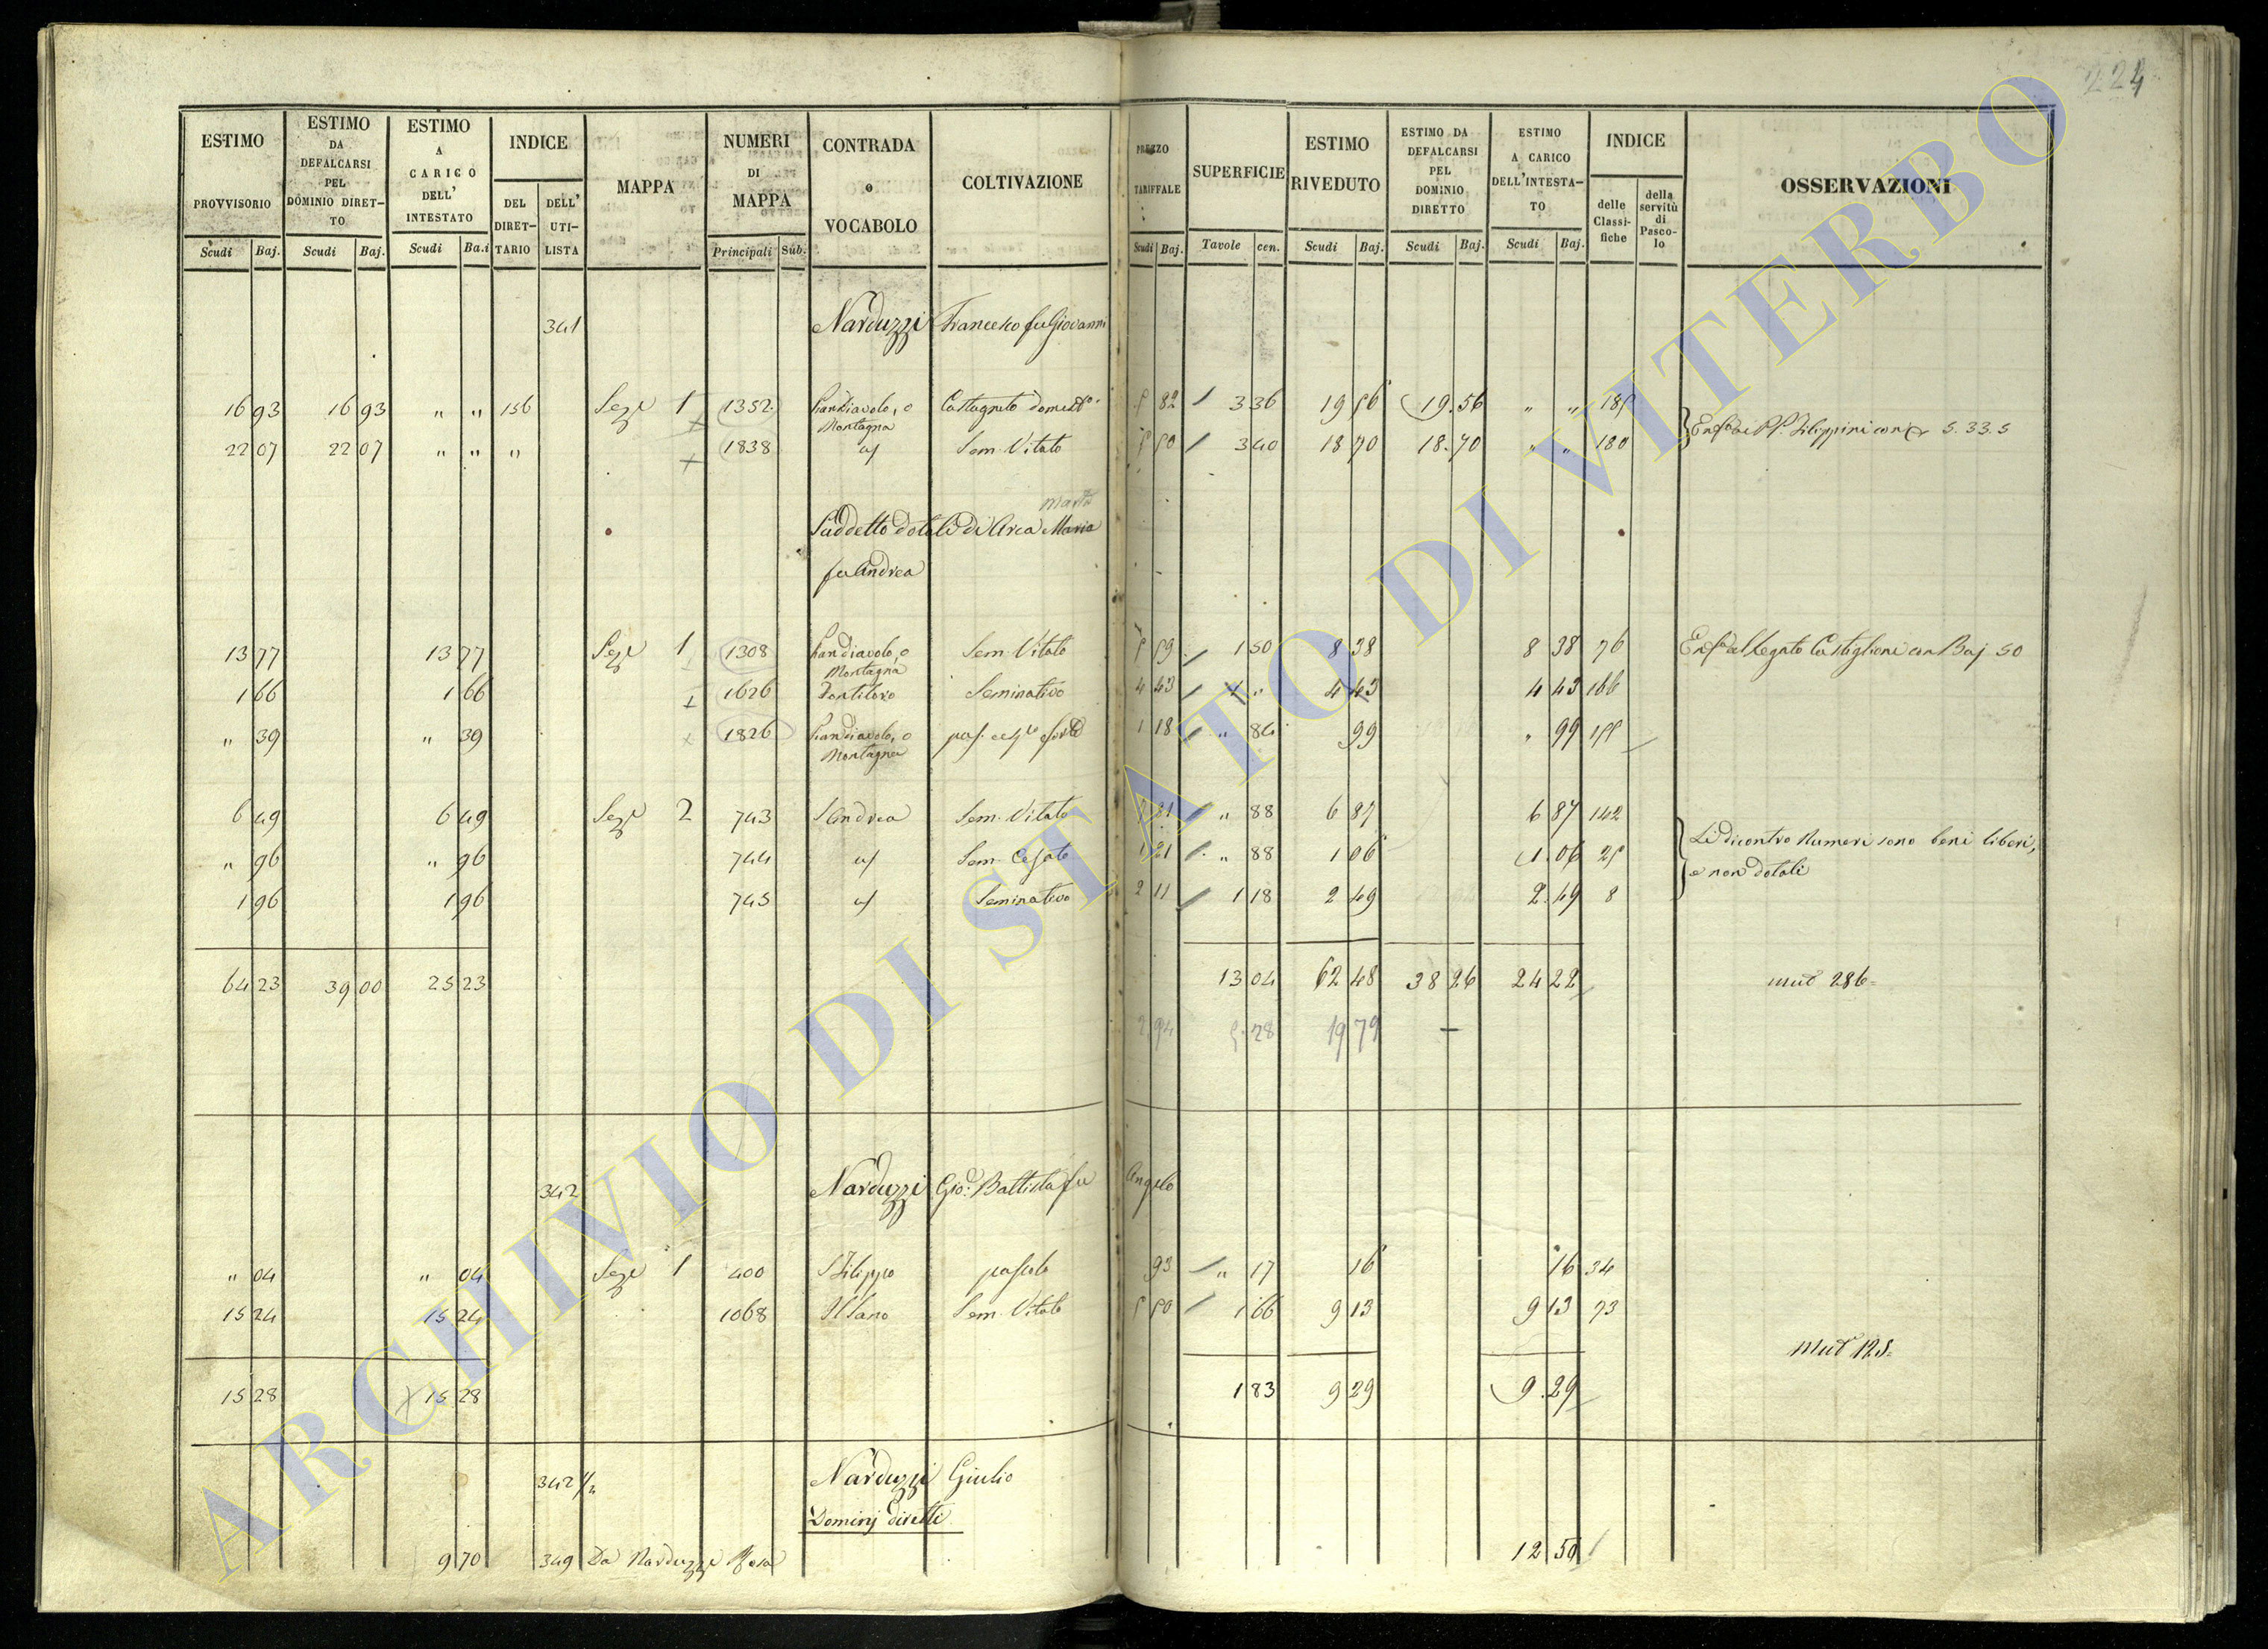 224
ESTIMO PROVVISORIO Scudi Baj.
ESTIMO DA DEFALCARSI PEL DOMINIO DIRETTO Scudi Baj.
ESTIMO A CARICO DELL' INTESTATO Scudi Ba.i
INDICE DEL DIRETTARIO DELL' UTILISTA
MAPPA
NUMERI DI MAPPA Principali Sub.
CONTRADA o VOCABOLO
COLTIVAZIONE
PREZZO TARIFFALE Scudi Baj.
SUPERFICIE Tavole cen.
ESTIMO RIVEDUTO Scudi Baj.
ESTIMO DA DEFALCARSI PEL DOMINIO DIRETTO Scudi Baj.
ESTIMO A CARICO DELL'INTESTATO Scudi Baj.
INDICE delle Classifiche della servitù di Pascolo
OSSERVAZIONI
341 Narduzzi Francesco fu Giovanni
16 93 16 93 " " 156 Sez.e 1 1352 Pandiavolo, o Montagna Castagneto domest.o 5 82 3 36 19 56 19.56 " " 185
22 07 22 07 " " " 1838 Sem. Vitato 5 50 3 40 18 70 18.70 " " 180
PP. Filippini con 5.33.5
Marta
Suddetto dotali di Arca Maria
fu Andrea
13 77 13 77 Sez.e 1 1308 Pandiavolo, o Montagna Sem. Vitato 5 59 1 50 8 38 8 38 76 Castiglioni con Baj 50
1 66 1 66 1626 Seminativo 4 43 1 " 4 43 4 43 166
" 39 " 39 1826 Pandiavolo, o Montagna 1 18 " 84 99 " 99 155
6 49 6 49 Sez.e 2 743 S Andrea Sem. Vitato 7 81 " 88 6 87 6 87 142
" 96 " 96 744 Sem. Cesato 1 21 " 88 1 06 1.06 25
1 96 1 96 745 Seminativo 2 11 1 18 2 49 2.49 8
Li dicontro Numeri sono beni liberi,
e non dotali
64 23 39 00 25 23 13 04 62 48 38 26 24 22 mut 286
2 94 5.28 19 79 —
342 Narduzzi Gio: Battista fu Angelo
" 04 " 04 Sez.e 1 400 S Filippo pascolo 93 " 17 16 16 34
15 24 15 24 1068 Sem. Vitato 5 50 1 66 9 13 9 13 73
Mut 125
15 28 15 28 1 83 9 29 9.29
342 1/2 Narduzzi Giulio
Dominj diretti
9 70 349 Da Narduzzi Rosa 12 50
ARCHIVIO DI STATO DI VITERBO